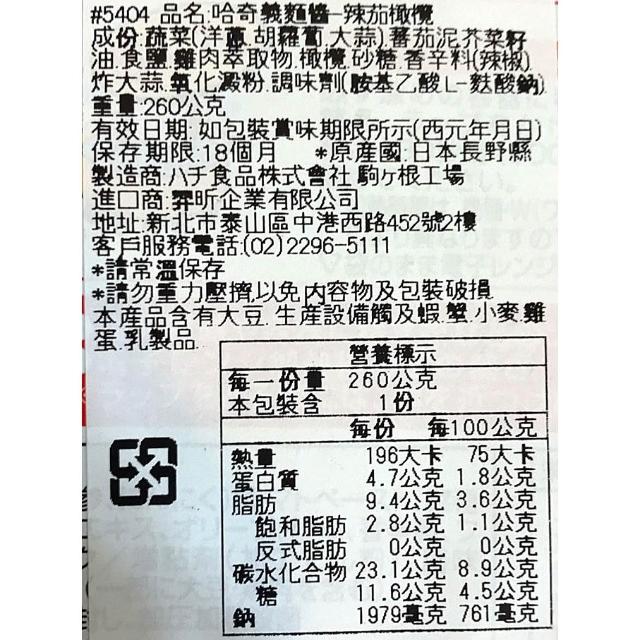 #5404 品名:哈奇義麵醬-辣茄橄欖
成份:蔬菜(洋蔥.胡蘿蔔.大蒜).蕃茄泥芥菜籽
油.食鹽.雞肉萃取物.橄欖.砂糖.香辛料(辣椒)
炸大蒜.氧化澱粉.調味劑(胺基乙酸.L-麩酸鈉)
重量:260公克
有效日期:如包裝賞味期限所示(西元年月日)
保存期限:18個月 *原產國:日本長野縣
製造商:ハチ食品株式會社 駒ヶ根工場
進口商:羿昕企業有限公司
地址:新北市泰山區中港西路452號2樓
客戶服務電話:(02)2296-5111
*請常溫保存
*請勿重力壓擠,以免內容物及包裝破損.
本產品含有大豆.生產設備觸及蝦.蟹.小麥.雞
蛋.乳製品.
營養標示
每一份量 260公克
本包裝含 1份
每份 每100公克
熱量 196大卡 75大卡
蛋白質 4.7公克 1.8公克
脂肪 9.4公克 3.6公克
飽和脂肪 2.8公克 1.1公克
反式脂肪 0公克 0公克
碳水化合物 23.1公克 8.9公克
糖 11.6公克 4.5公克
鈉 1979毫克 761毫克